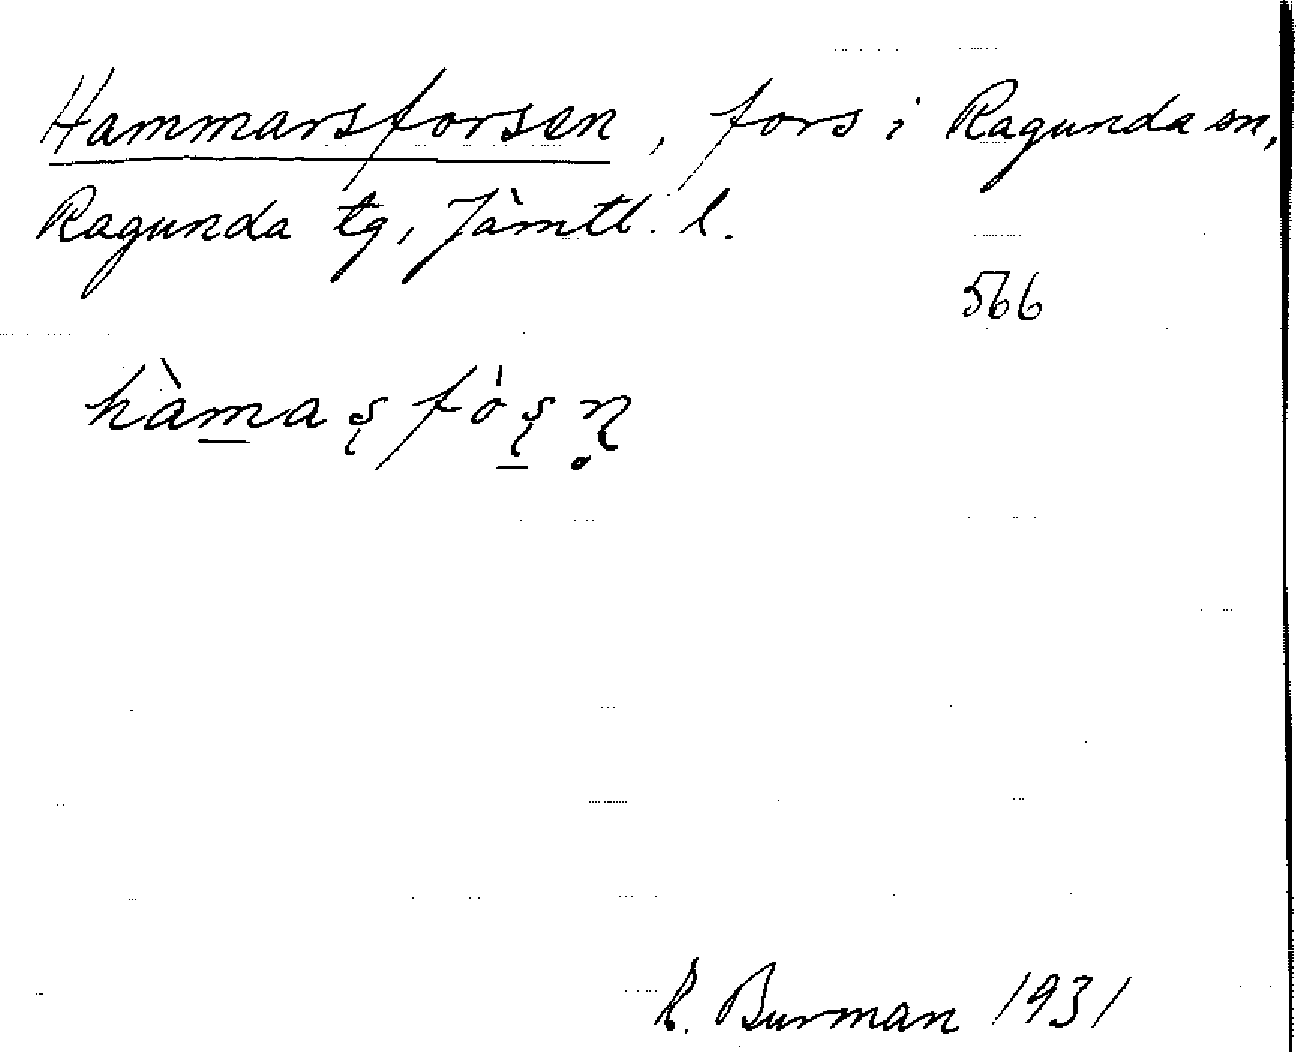 Hammarsforsen, fors i Ragunda sn,
Ragunda tg, Jämtl. l.
566
hàma̱ʂfóʂ̱ɳ̥
R. Burman 1931